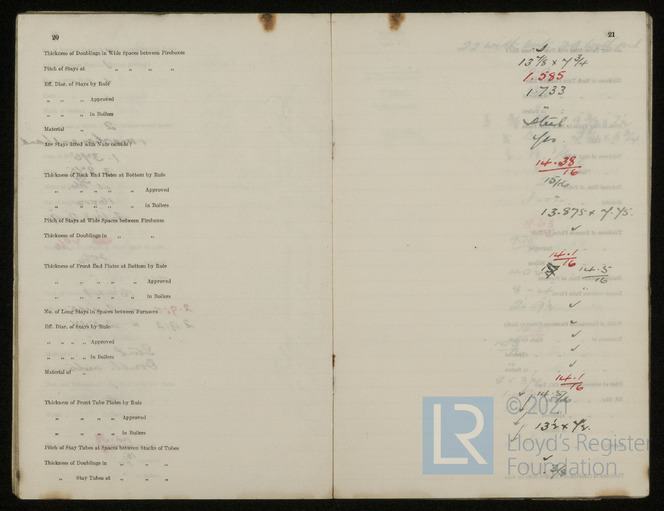 20
Thickness of Doublings in Wide Spaces between Fireboxes
Pitch of Stays at „ „ „ „
Eff. Diar. of Stays by Rule
„ „ „ Approved
„ „ „ in Boilers
Material „
Are Stays fitted with Nuts outside?
Thickness of Back End Plates at Bottom by Rule
„ „ „ „ „ Approved
„ „ „ „ „ in Boilers
Pitch of Stays at Wide Spaces between Fireboxes
Thickness of Doublings in „ „
Thickness of Front End Plates at Bottom by Rule
„ „ „ „ „ Approved
„ „ „ „ „ in Boilers
No. of Long Stays in Spaces between Furnaces
Eff. Diar. of Stays by Rule
„ „ „ „ Approved
„ „ „ „ in Boilers
Material of „
Thickness of Front Tube Plates by Rule
„ „ „ „ Approved
„ „ „ „ in Boilers
Pitch of Stay Tubes at Spaces between Stacks of Tubes
Thickness of Doublings in „ „ „ „
„ Stay Tubes at „ „ „
21
✓
13 7/8 x 7 3/4
1.585
1.733
„
Steel
Yes
14.38/16
15/16
13.875 x 7.75
✓
14.1/16
14.5/16
„
✓
✓
✓
✓
14.1/16
✓
13 1/2 x
✓
© 2021
LR
Lloyd's Register
Foundation